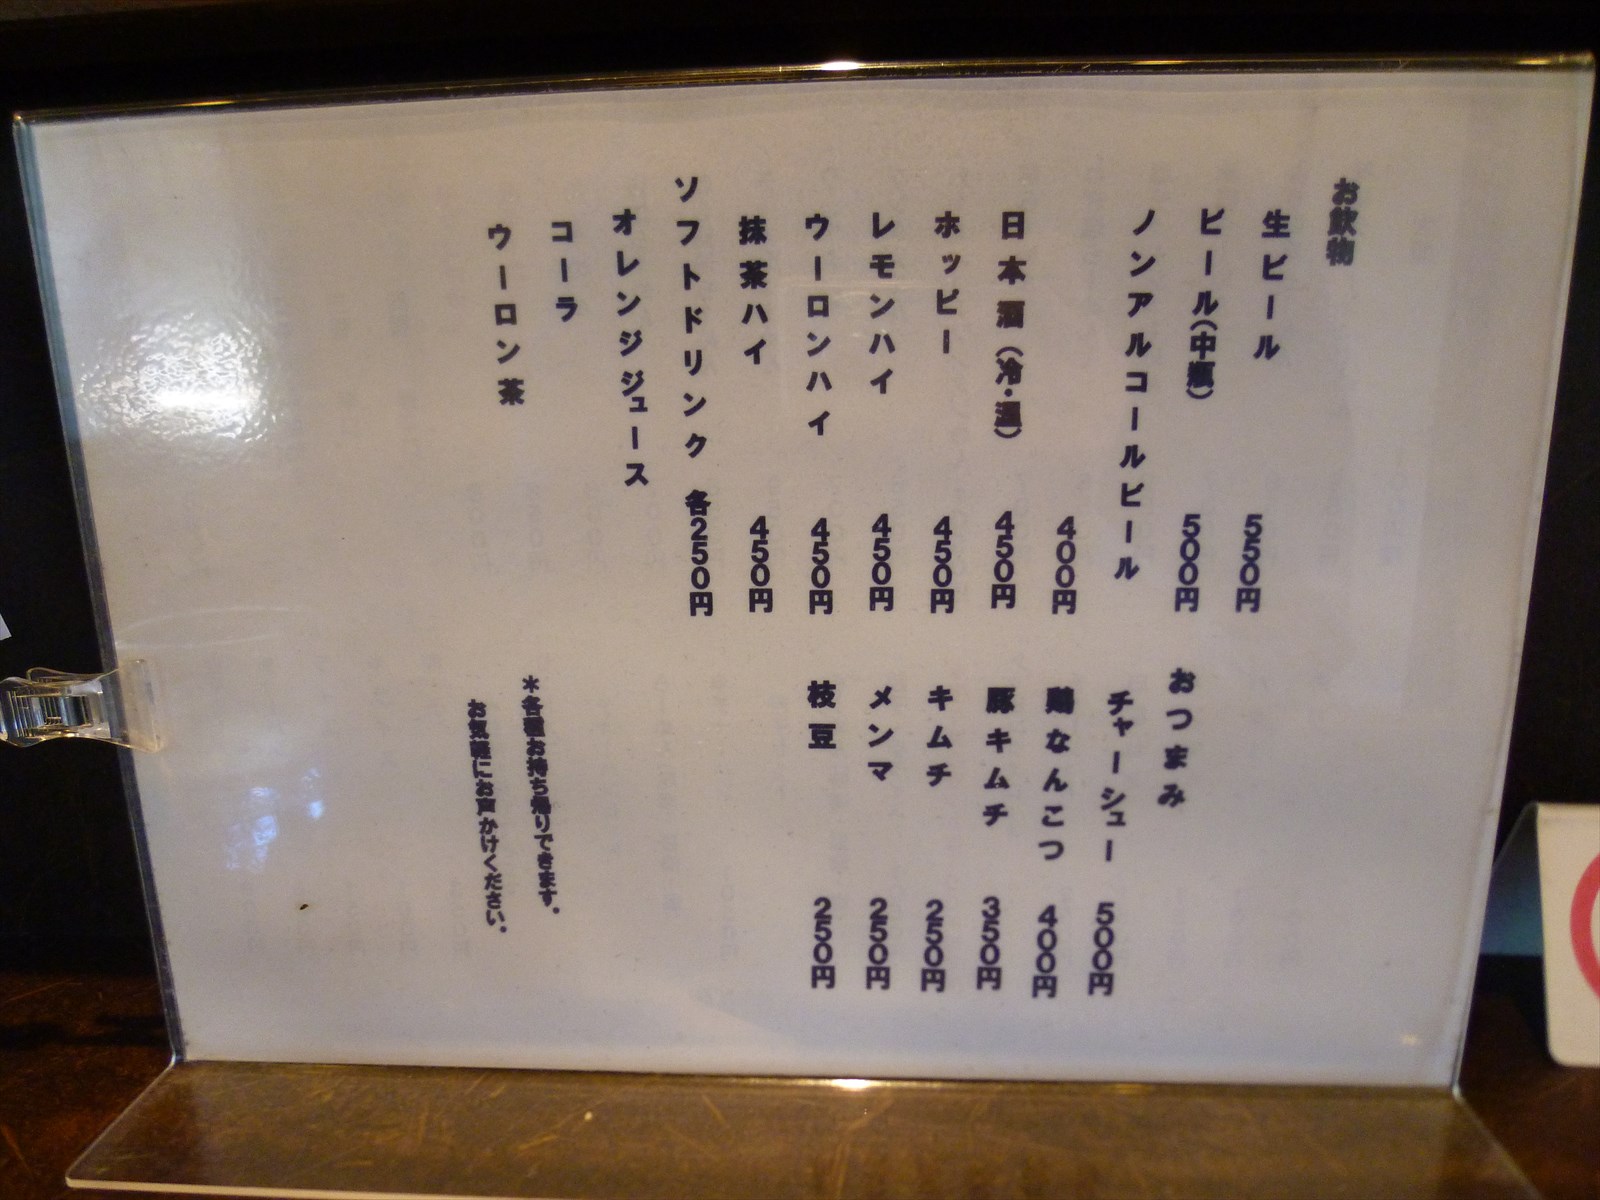 お飲物
生ビール 550円
ビール(中瓶) 500円
ノンアルコールビール 400円
日本酒(冷・温) 450円
ホッピー 450円
レモンハイ 450円
ウーロンハイ 450円
抹茶ハイ 450円
ソフトドリンク 各250円
オレンジジュース
コーラ
ウーロン茶
おつまみ
チャーシュー 500円
鶏なんこつ 400円
豚キムチ 350円
キムチ 250円
メンマ 250円
枝豆 250円
*各種お持ち帰りできます。
お気軽にお声かけください。